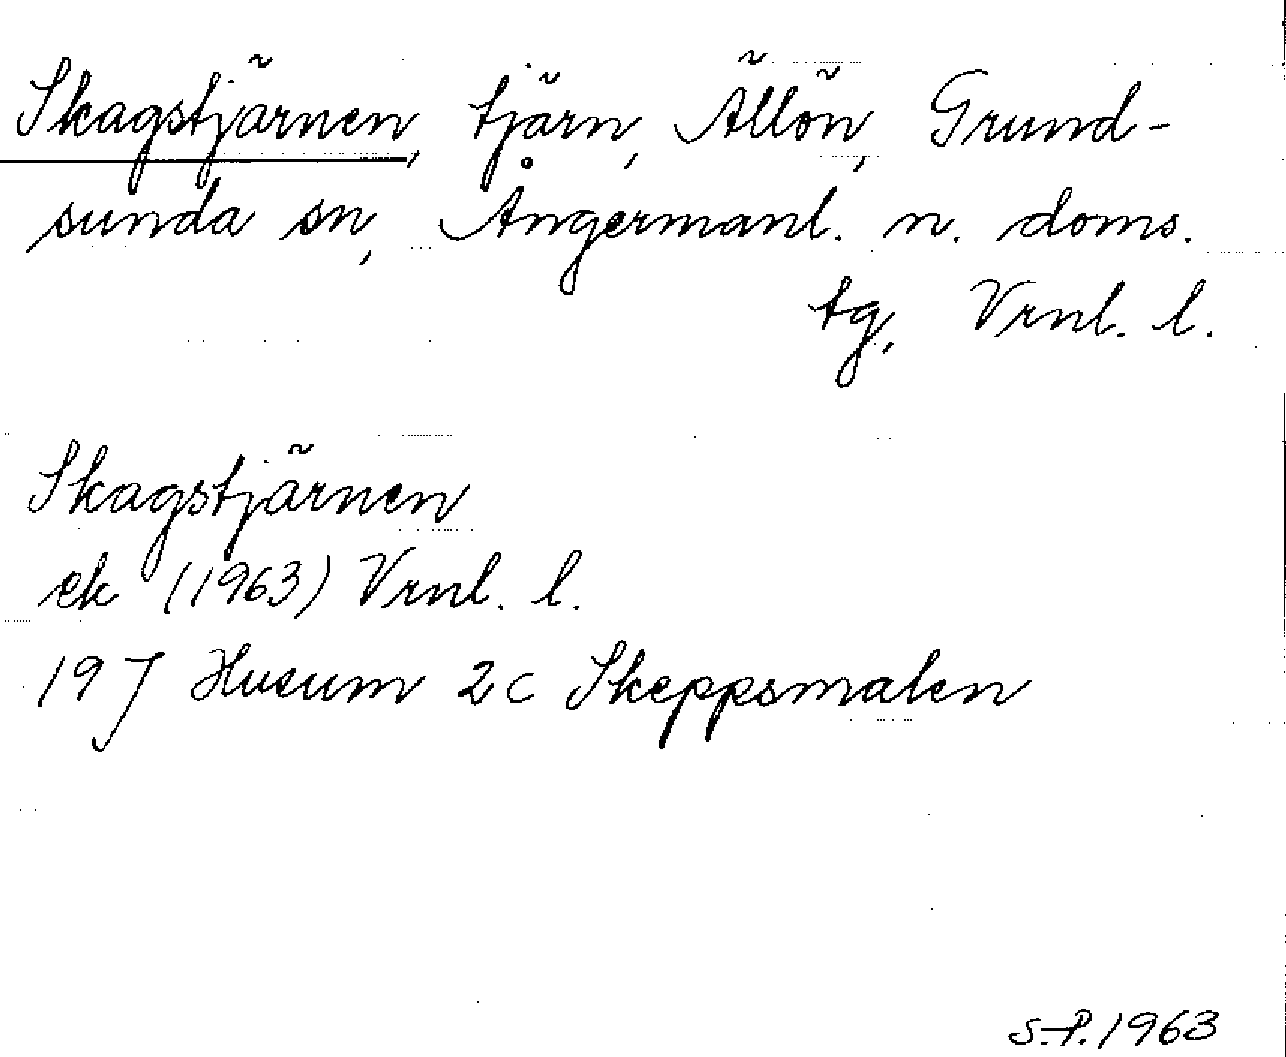 Skagstjärnen, tjärn, Ällön, Grund-
sunda sn, Ångermanl. n. doms.
tg, Vrnl. l.
Skagstjärnen
ek (1963) Vrnl. l.
19 J Husum 2c Skeppsmalen
S.P. 1963